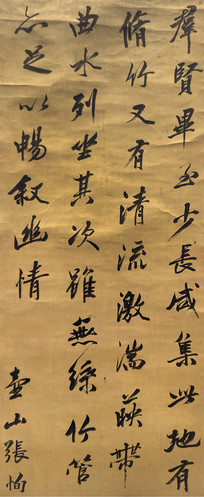 羣賢畢至少長咸集此地有
脩竹又有清流激湍暎帶
曲水列坐其次雖無絲竹管
亦足以暢叙幽情
壺山張恂